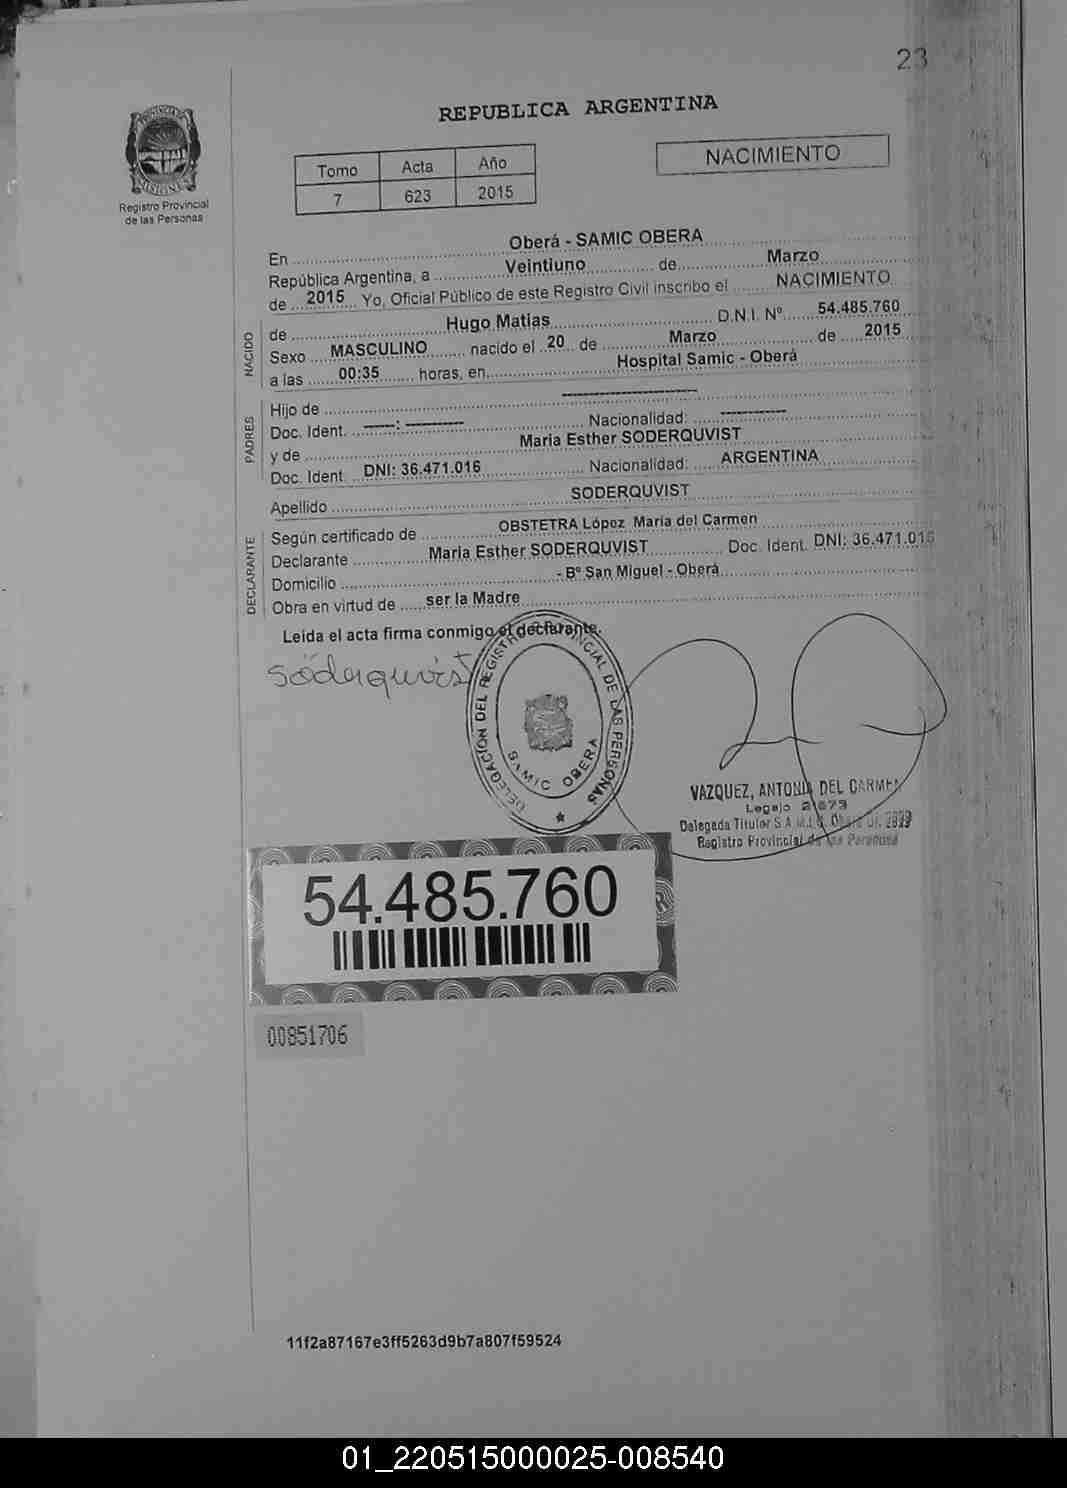 23
REPUBLICA ARGENTINA
Registro Provincial
de las Personas
Tomo Acta Año
7 623 2015
NACIMIENTO
En Oberá - SAMIC OBERA
República Argentina, a Veintiuno de Marzo
de 2015 Yo, Oficial Público de este Registro Civil inscribo el NACIMIENTO
NACIDO
de Hugo Matias D.N.I. Nº 54.485.760
Sexo MASCULINO nacido el 20 de Marzo de 2015
a las 00:35 horas, en Hospital Samic - Oberá
PADRES
Hijo de --------------------
Doc. Ident. -----: --------- Nacionalidad: ----------
y de Maria Esther SODERQUVIST
Doc. Ident. DNI: 36.471.016 Nacionalidad: ARGENTINA
Apellido SODERQUVIST
DECLARANTE
Según certificado de OBSTETRA López Maria del Carmen
Declarante Maria Esther SODERQUVIST Doc. Ident. DNI: 36.471.016
Domicilio - Bº San Miguel - Oberá
Obra en virtud de ser la Madre
Leída el acta firma conmigo el declarante.
Söderquvist
DELEGACION DEL REGISTRO PROVINCIAL DE LAS PERSONAS
SAMIC OBERA
VAZQUEZ, ANTONIA DEL CARMEN
Legajo 2673
Delegada Titular S.A.M.I.C. Oberá
Registro Provincial de las Personas
54.485.760
00851706
11f2a87167e3ff5263d9b7a807f59524
01_220515000025-008540